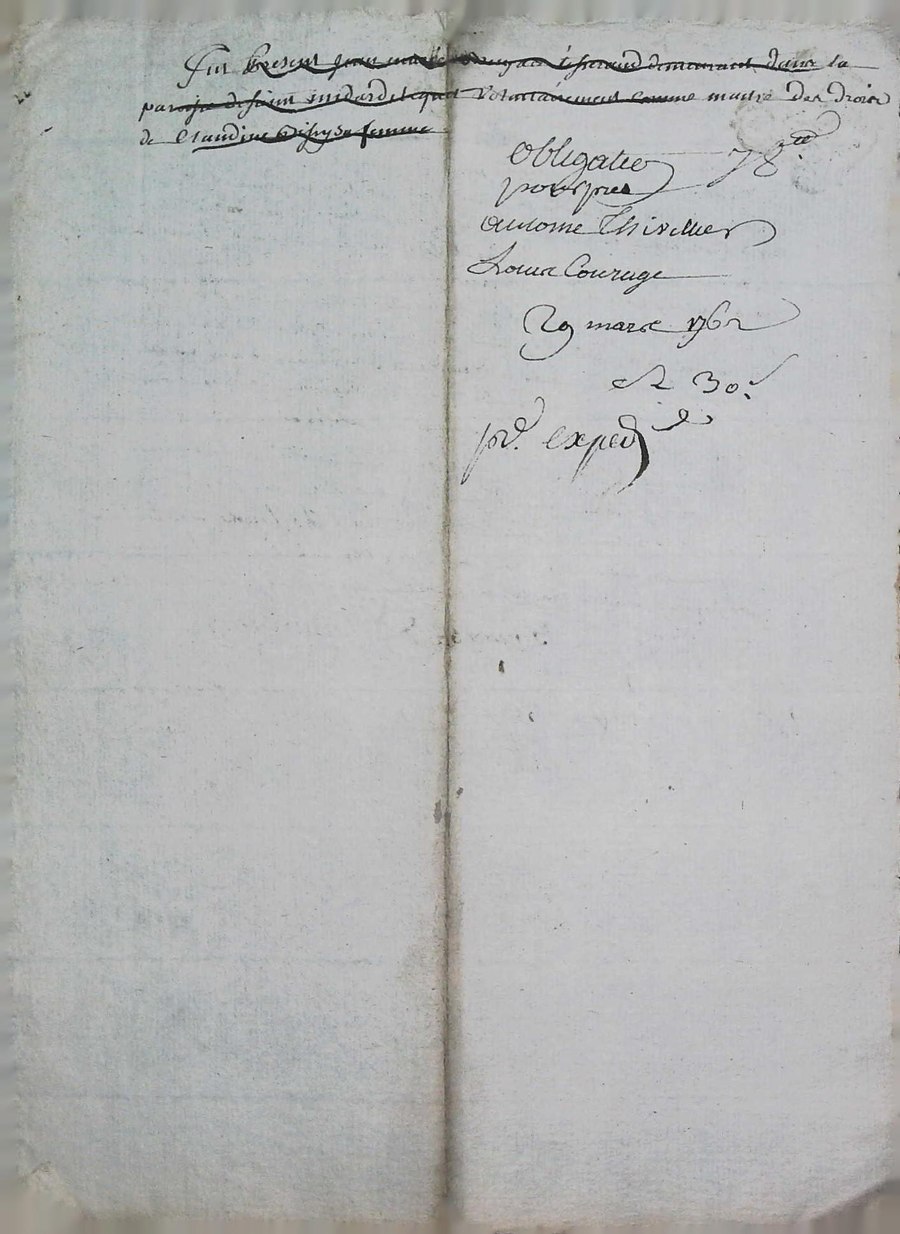 Fut Present jean demeurant dans la
paroisse de saint medard lequel Volontairement comme maitre des droits
de Claudine sa femme
Obligatio 78
pour
antoine Thivillier
Louis Courage
29 mars 1762
30
pr. exped